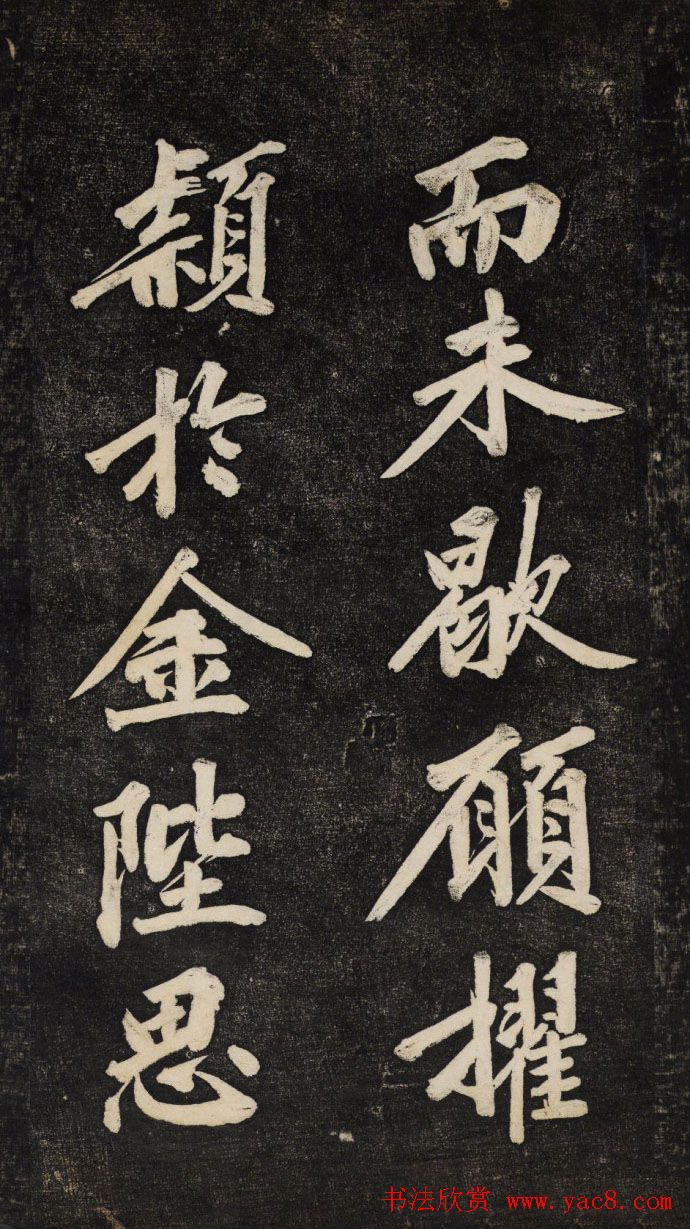 而未歇願擢
穎於金陛思
书法欣赏 www.yac8.com